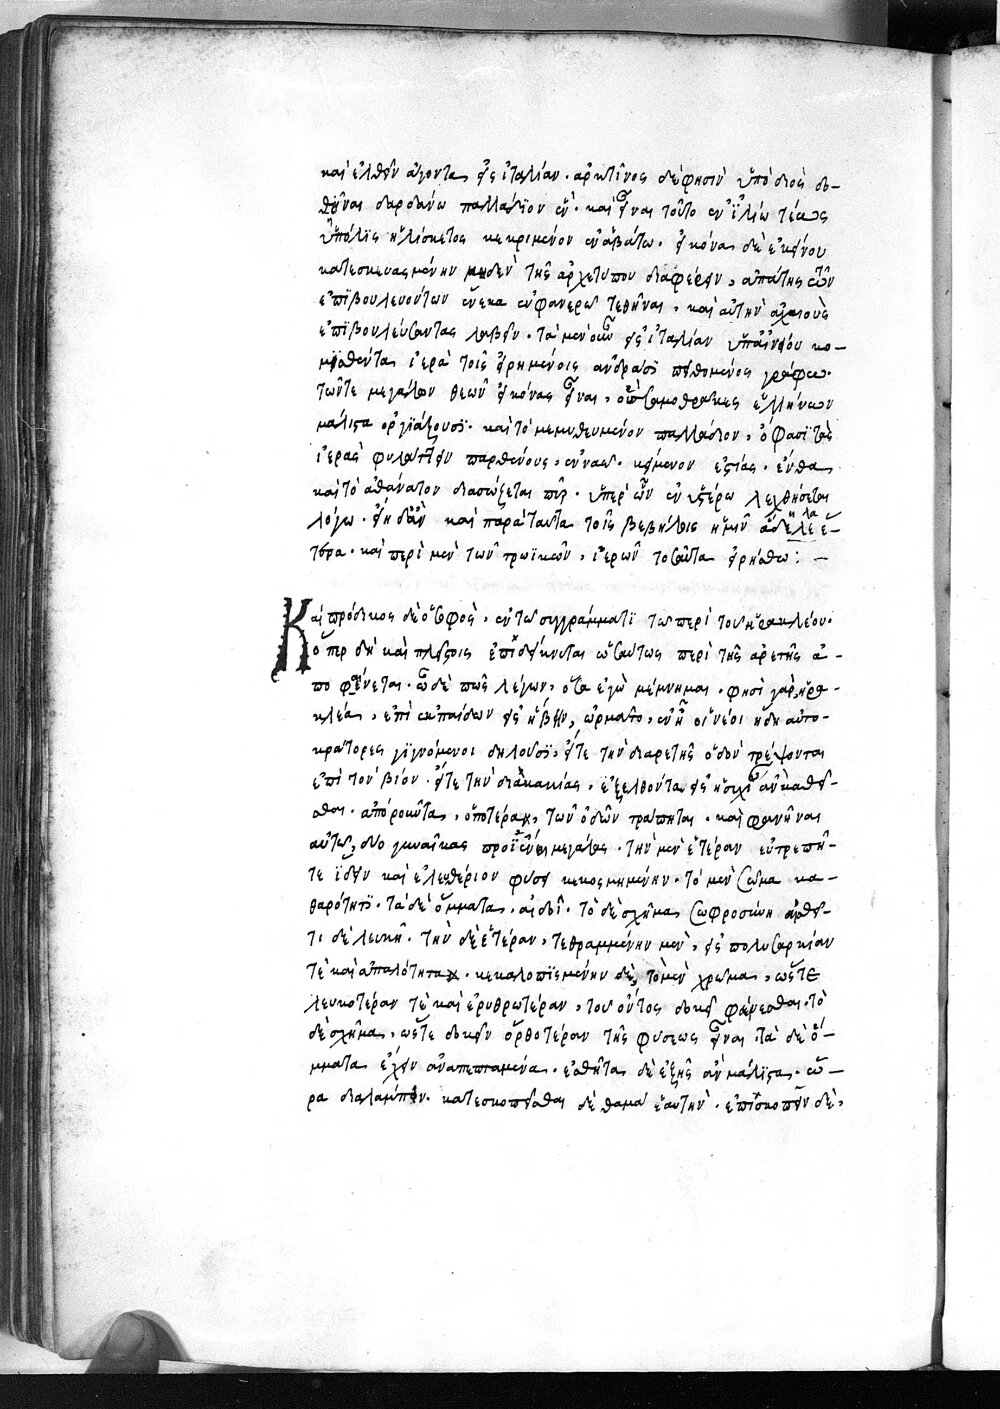 καὶ ἐλθεῖν ἄγοντας εἰς ἰταλίαν. ἀρκτῖνος δέ φησιν ὑπὸ διὸς δο-
θῆναι δαρδάνω παλλάδϊον ἕν. καὶ εἶναι τοῦτο ἐν ἰλίω τέως
ἡ πόλϊς ἡλίσκετο κεκριμένον ἐν ἀβάτω. εἰκόνα δὲ ἐκείνου
κατεσκευασμένην μηδὲν τῆς ἀρχετύπου διαφέρειν, ἀπάτης τῶν
ἐπϊβουλευόντων ἕνεκα ἐν φανερῶ τεθῆναι, καὶ αὐτὴν ἀχαιοὺς
ἐπϊβουλεύσαντας λαβεῖν. τὰ μὲν οὖν εἰς ἰταλίαν ὑπ' αἰνείου κο-
μισθέντα ἱερὰ τοῖς εἰρημένοις ἀνδράσϊ πειθόμενος γράφω.
τῶν τε μεγάλων θεῶν εἰκόνας εἶναι, οὓς σαμοθρᾶκες ἑλλήνων
μάλιστα ὀργϊάζουσϊ. καὶ τὸ μεμυθευμένον παλλάδιον, ὅ φασϊ τὰς
ἱερὰς φυλάττειν παρθένους, ἐν ναῶ. κείμενον ἑστίας. ἔνθα
καὶ τὸ ἀθάνατον διασώζεται πῦρ. ὑπὲρ ὧν ἐν ὑστέρω λεχθήσεται
λόγω. εἴη δ' ἂν καὶ παρὰ ταῦτα τοῖς βεβήλοις ἡμῖν ἄδηλα ἕ-
τερα. καὶ περὶ μὲν τῶν τρωϊκῶν, ἱερῶν τοσαῦτα εἰρήσθω: –
Καὶ πρόδικος δὲ ὁ σοφὸς, ἐν τῶ συγγράμματϊ τῶ περὶ τοῦ ἡρακλέου.
ὅπερ δὴ καὶ πλείστοις ἐπιδείκνυται ὡσαύτως περὶ τῆς ἀρετῆς ἀ-
ποφαίνεται. ὧδέ πως λέγων, ὅσα ἐγὼ μέμνημαι. φησὶ γὰρ, ἡρα-
κλέα, ἐπεὶ ἐκ παίδων εἰς ἥβην, ὡρμᾶτο, ἐν ἧ οἱ νέοι ἤδη αὐτο-
κράτορες γϊγνόμενοι δηλοῦσϊ, εἴτε τὴν δι' ἀρετῆς ὁδὸν τρέψονται
ἐπὶ τὸν βίον. εἴτε τὴν διὰ κακίας, ἐξελθόντα εἰς ἡσυχίαν καθῆ-
σθαι. ἀποροῦντα, ὁποτέραν, τῶν ὁδῶν τράπηται. καὶ φανῆναι
αὐτῶ, δύο γυναῖκας προϊέναι μεγάλας. τὴν μὲν ἑτέραν εὐπρεπῆ-
τε ἰδεῖν καὶ ἐλευθέριον φύσει κεκοσμημένην. τὸ μὲν σῶμα κα-
θαρότητϊ. τὰ δὲ ὄμματα, αἰδοῖ. τὸ δὲ σχῆμα, σωφροσύνη ἐσθῆ-
τι δὲ λευκῆ. τὴν δὲ ἑτέραν, τεθραμμένην μὲν, εἰς πολυσαρκίαν
τὲ καὶ ἁπαλότητα. κεκαλοπϊσμένην δὲ, τὸ μὲν χρῶμα, ὥστε
λευκοτέραν τὲ καὶ ἐρυθρωτέραν, τοῦ ὄντος δοκεῖν φαίνεσθαι. τὸ
δὲ σχῆμα, ὥστε δοκεῖν ὀρθοτέραν τῆς φύσεως εἶναι. τὰ δὲ ὄ-
μματα ἔχειν ἀναπεπταμένα. ἐσθῆτα δὲ ἐξ ἧς ἂν μάλιστα. ὥ-
ρα διαλάμποι. κατεσκοπεῖσθαι δὲ θαμὰ ἑαυτὴν. ἐπισκοπεῖν δὲ,